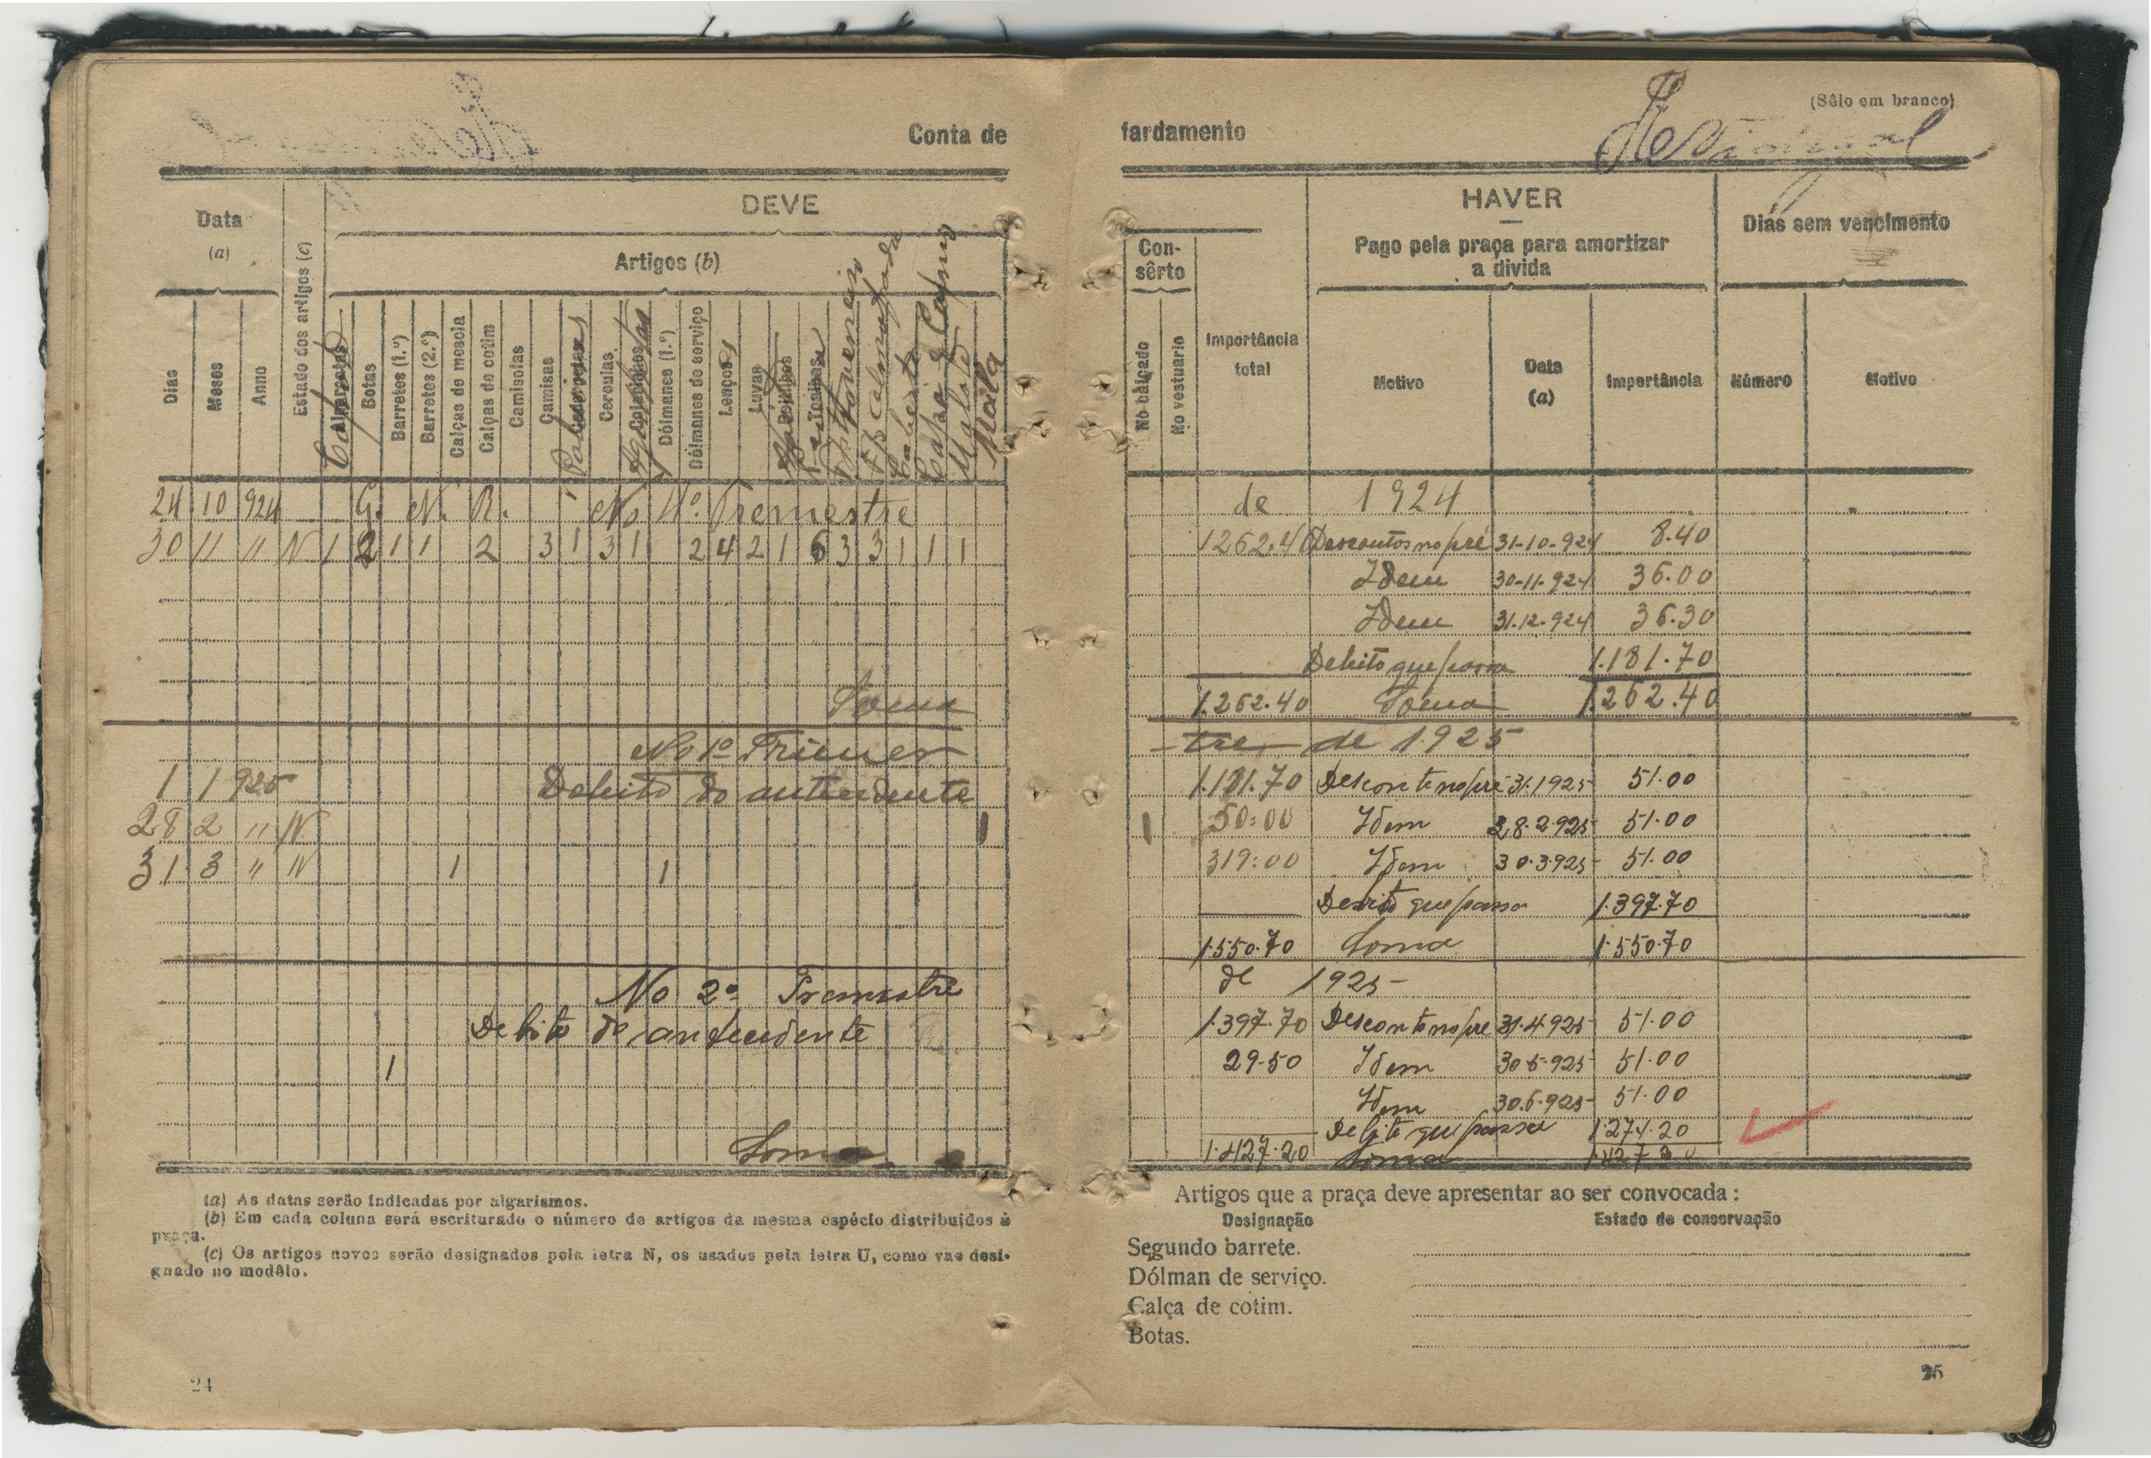 Conta de
DEVE
Data
(a)
Artigos (b)
Dias
Meses
Anno
Estado dos artigos (c)
Capote
Botas
Barretes (1.º)
Barretes (2.º)
Calças de mescla
Calças de cotim
Camisolas
Camisas
Ceroulas
Dólmanes (1.º)
Dólmanes de serviço
Lenços
Luvas
Mala
24 10 924 G. N. R. No 4º Tremestre
30 11 " N 1 2 1 1 2 3 1 3 1 2 4 2 1 6 3 3 1 1 1
Soma
No 1º Trimes
1 1 925 Debito do antecedente
28 2 " N 1
31 3 " N 1 1
No 2º Tremestre
Debito do antecedente
1
Soma
(a) As datas serão indicadas por algarismos.
(b) Em cada coluna será escriturado o número de artigos da mesma espécie distribuídos à
praça.
(c) Os artigos novos serão designados pela letra N, os usados pela letra U, como vae desi-
gnado no modêlo.
24
(Sêlo em branco)
fardamento
HAVER
Con-
sêrto
Pago pela praça para amortizar
a dívida
Dias sem vencimento
No calçado
No vestuario
Importância
total
Motivo
Data
(a)
Importância
Número
Motivo
de 1924
1262.40 Descontos no pré 31-10-924 8.40
Idem 30-11-924 36.00
Idem 31.12.924 36.30
Debito que passa 1.181.70
1.262.40 Soma 1.262.40
tre de 1925
1.181.70 Desconto no pré 31.1925 51.00
1 50:00 Idem 28.2.925 51.00
319:00 Idem 30.3.925 51.00
Debito que passa 1.397.70
1.550.70 Soma 1.550.70
de 1925
1.397.70 Desconto no pré 31.4.925 51.00
29.50 Idem 30.5.925 51.00
Idem 30.6.925 51.00
Debito que passa 1.274.20
1.427.20 Soma 1.427.20
Artigos que a praça deve apresentar ao ser convocada:
Designação Estado de conservação
Segundo barrete.
Dólman de serviço.
Calça de cotim.
Botas.
25